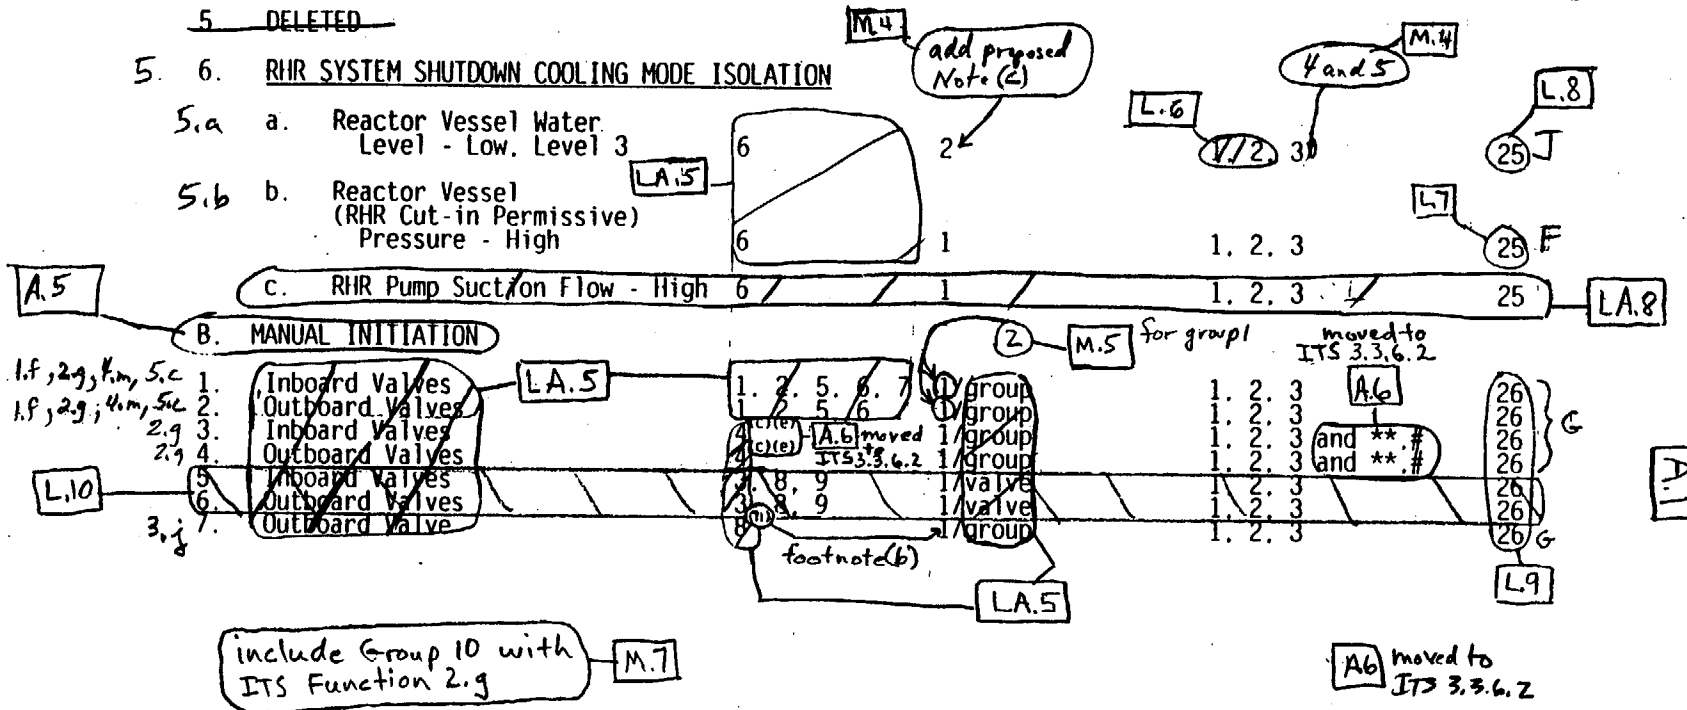 5 DELETED
M.4
add proposed
Note (c)
4 and 5
M.4
5. 6. RHR SYSTEM SHUTDOWN COOLING MODE ISOLATION
L.6
L.8
5.a a. Reactor Vessel Water
Level - Low, Level 3 6 2 1, 2, 3 25 J
LA.5
5.b b. Reactor Vessel
(RHR Cut-in Permissive)
L.7
Pressure - High 6 1 1, 2, 3 25 F
A.5
c. RHR Pump Suction Flow - High 6 1 1, 2, 3 25
LA.8
B. MANUAL INITIATION
2
M.5
for group 1
moved to
ITS 3.3.6.2
A.6
1.f, 2.g, 4.m, 5.c 1. Inboard Valves LA.5 1, 2, 5, 6, 7 1/group 1, 2, 3 26
1.f, 2.g, 4.m, 5.c 2. Outboard Valves 1, 2, 5, 6 1/group 1, 2, 3 26
G
2.g 3. Inboard Valves 4(c)(e) A.6 moved 1/group 1, 2, 3 and **,# 26
2.g 4. Outboard Valves 4(c)(e) ITS 3.3.6.2 1/group 1, 2, 3 and **,# 26
L.10
5. Inboard Valves 3, 8, 9 1/valve 1, 2, 3 26
6. Outboard Valves 3, 8, 9 1/valve 1, 2, 3 26
3.j 7. Outboard Valve 8 1/group 1, 2, 3 26 G
footnote(b)
L.9
LA.5
include Group 10 with
ITS Function 2.g
M.7
A.6 moved to
ITS 3.3.6.2